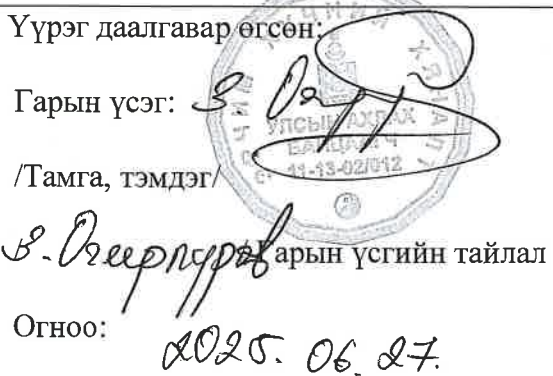 Үүрэг даалгавар өгсөн:
Гарын үсэг:
УЛСЫН АХЛАХ
БАЙЦААГЧ
11-13-02/012
/Тамга, тэмдэг/
Гарын үсгийн тайлал
Огноо:
2025. 06. 27.